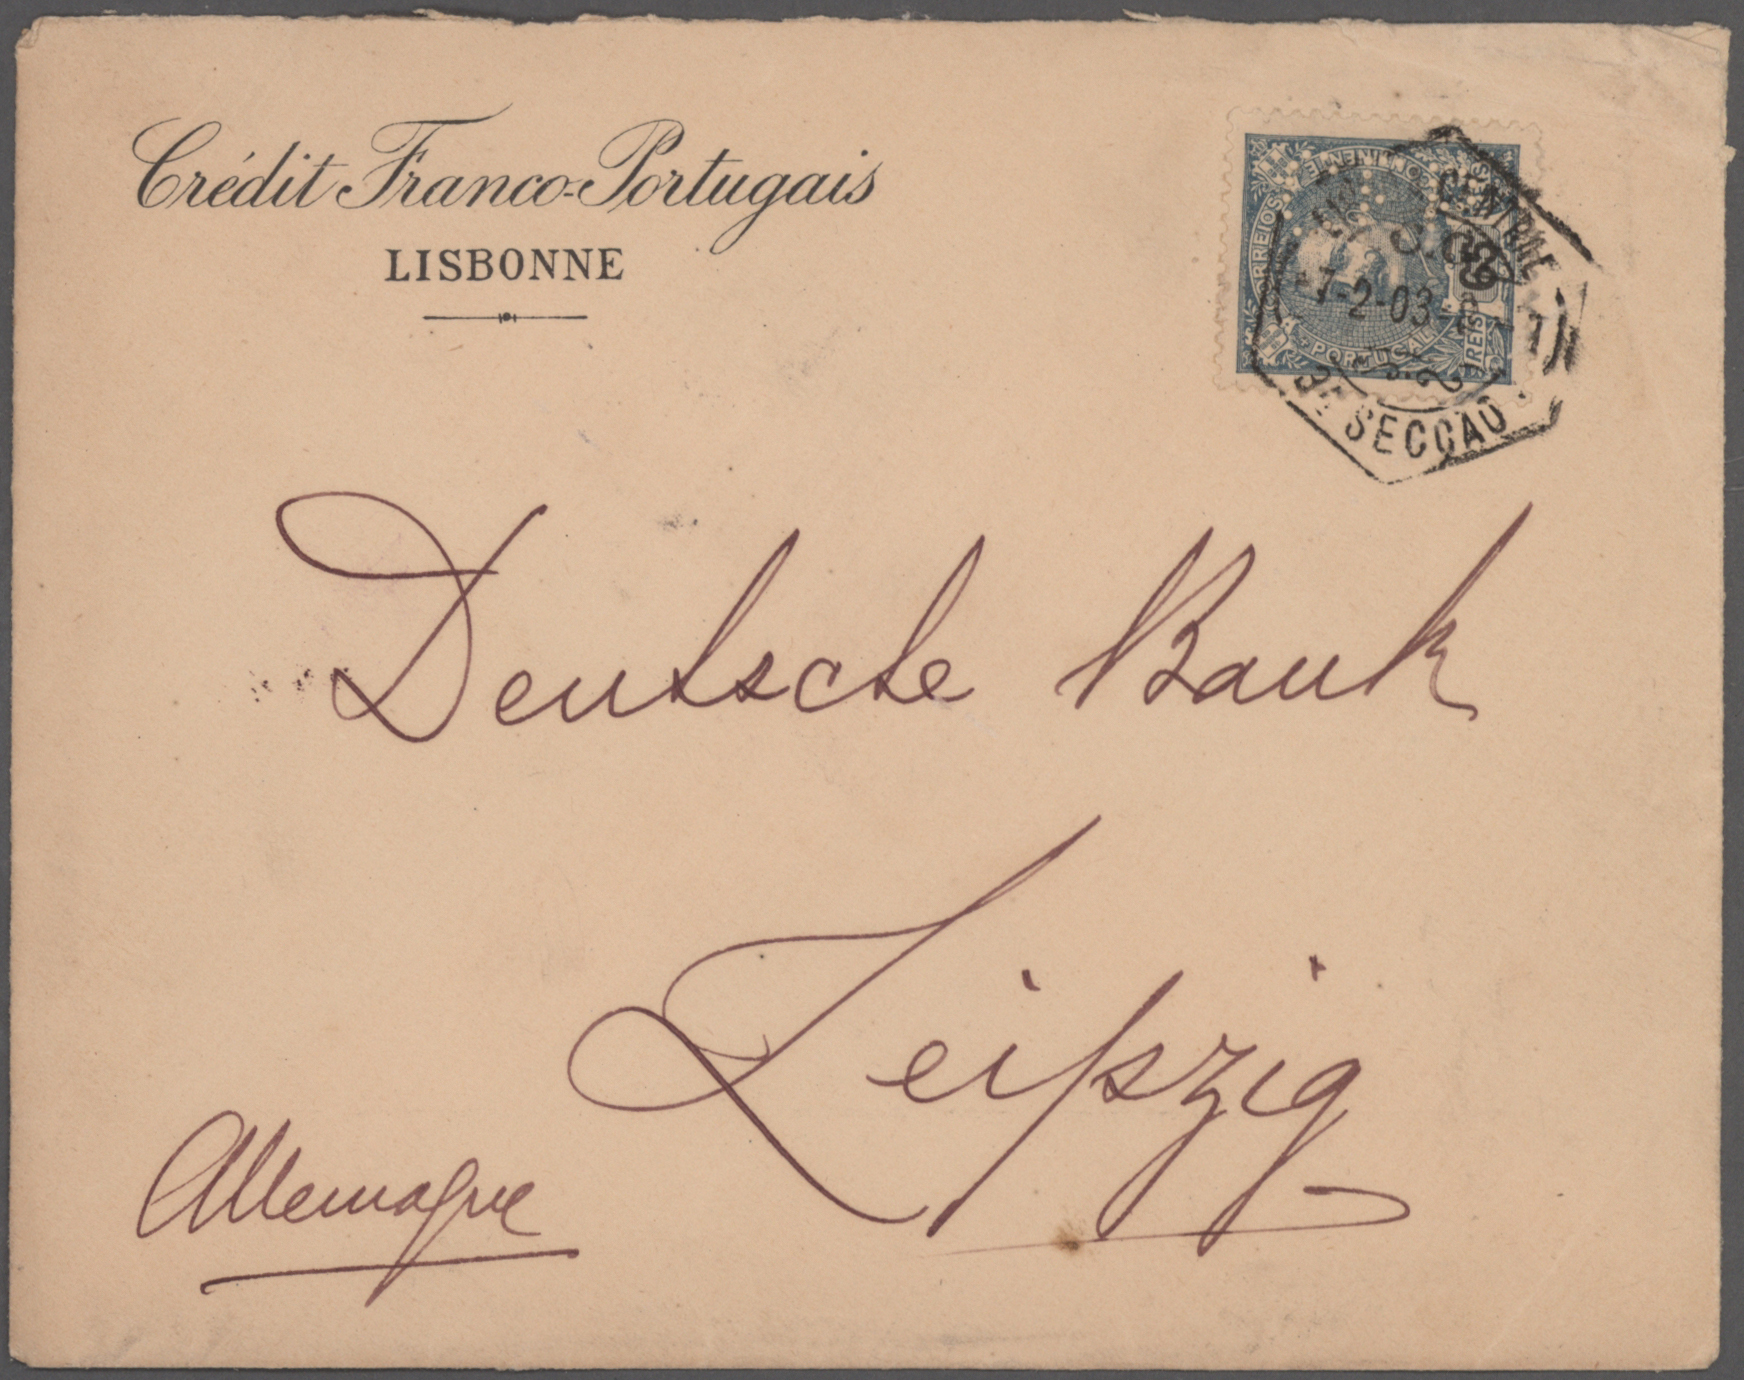 Crédit Franco-Portugais
LISBONNE
CORREIOS
PORTUGAL
65
REIS
CENTRAL
7-2-03
3ª SECCAO
Deutsche Bank
Leipzig
Allemagne